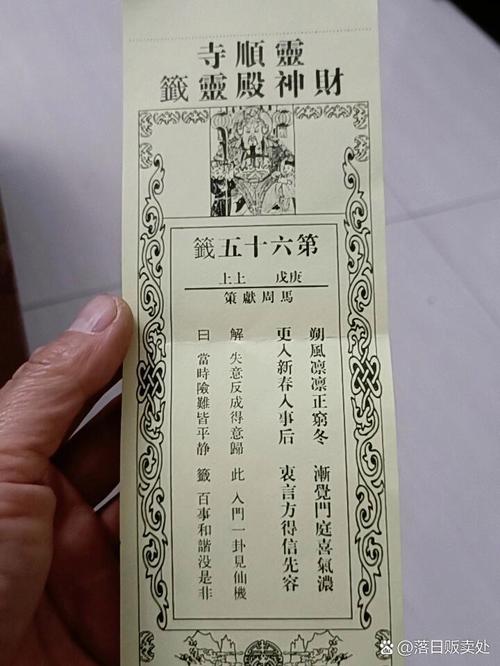 靈順寺
財神殿靈籤
第六十五籤
庚戌 上上
馬周獻策
朔風凛凛正窮冬 漸覺門庭喜氣濃
更入新春人事后 衷言方得信先容
解 失意反成得意歸 此 入門一卦見仙機
曰 當時險難皆平静 籤 百事和諧没是非
@落日贩卖处